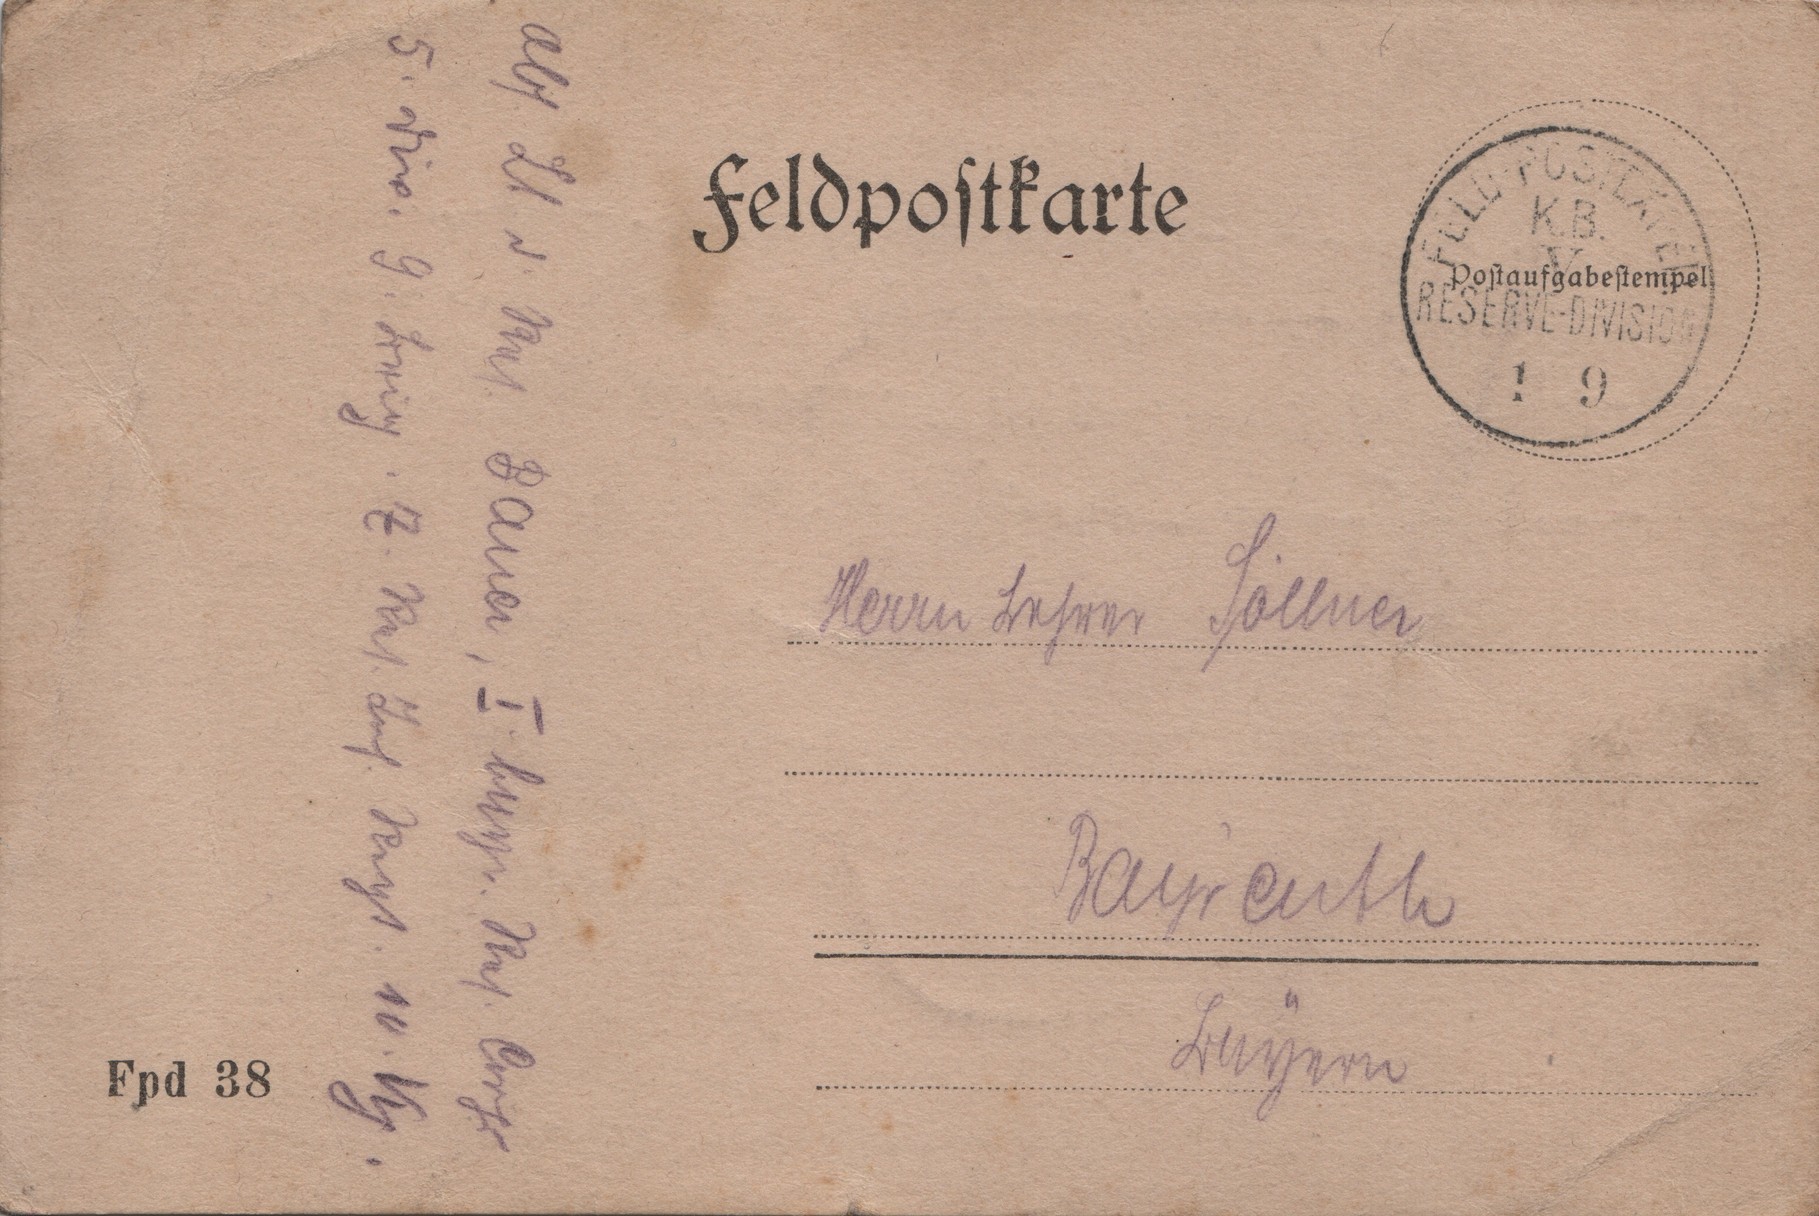 Feldpostkarte
FELD-POSTEXPED.
K.B.
V
RESERVE-DIVISION
1 9
Postaufgabestempel
Herrn Lehrer Söllner
Bayreuth
Bayern
Abs. Lt d. Res. Bauer, I. bayr. Res. Corps
5. Divis. 9. Brig. 7. Res. Inf. Regt. 10. Kp.
Fpd 38